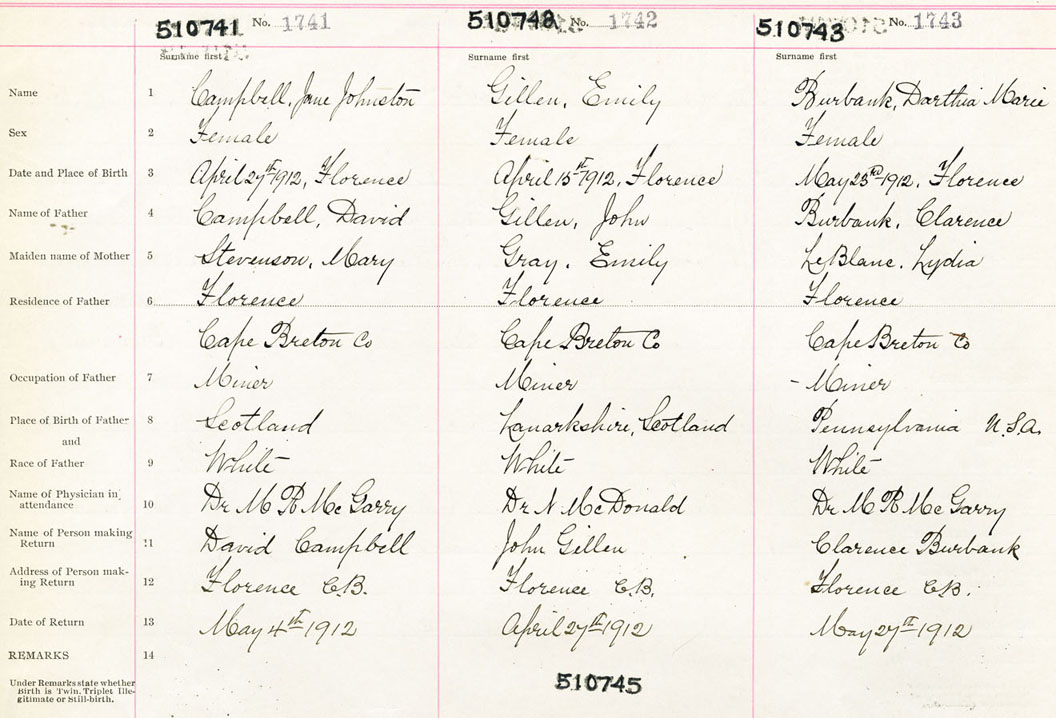 510741 No. 1741
510742 No. 1742
510743 No. 1743
Surname first Surname first Surname first
Name 1 Campbell, Jane Johnston Gillen, Emily Burbank, Darthia Marie
Sex 2 Female Female Female
Date and Place of Birth 3 April 27th 1912, Florence April 15st 1912, Florence May 23rd 1912, Florence
Name of Father 4 Campbell, David Gillen, John Burbank, Clarence
Maiden name of Mother 5 Stevenson, Mary Gray, Emily LeBlanc, Lydia
Residence of Father 6 Florence Florence Florence
Cape Breton Co Cape Breton Co Cape Breton Co
Occupation of Father 7 Miner Miner - Miner
Place of Birth of Father 8 Scotland Lanarkshire, Scotland Pennsylvania U.S.A.
and
Race of Father 9 White White White
Name of Physician in
attendance 10 Dr M R McGarry Dr N McDonald Dr M R McGarry
Name of Person making
Return 11 David Campbell John Gillen Clarence Burbank
Address of Person mak-
ing Return 12 Florence C.B. Florence C.B. Florence C.B.
Date of Return 13 May 4th 1912 April 27th 1912 May 27th 1912
REMARKS 14
Under Remarks state whether
Birth is Twin, Triplet Ille-
gitimate or Still-birth.
510745